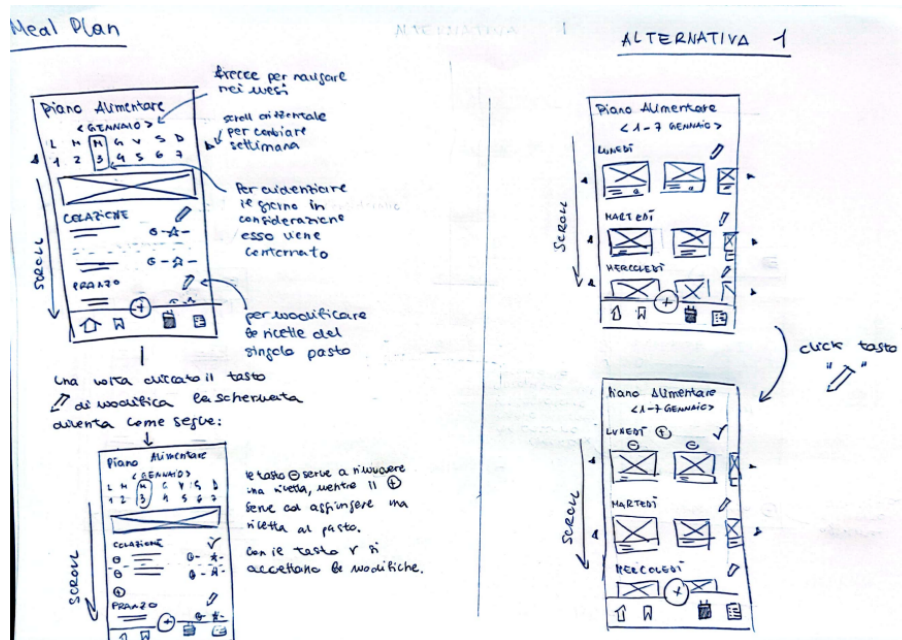 Meal Plan
frecce per navigare
nei mesi
Piano Alimentare
< GENNAIO >
L M M G V S D
1 2 3 4 5 6 7
scroll orizzontale
per cambiare
settimana
Per evidenziare
il giorno in
considerazione
esso viene
contornato
COLAZIONE
PRANZO
SCROLL
per modificare
le ricette del
singolo pasto
Una volta cliccato il tasto
di modifica la schermata
diventa come segue:
Piano Alimentare
< GENNAIO >
L M M G V S D
1 2 3 4 5 6 7
COLAZIONE
PRANZO
SCROLL
il tasto ⊖ serve a rimuovere
una ricetta, mentre il ⊕
serve ad aggiungere una
ricetta al pasto.
Con il tasto v si
accettano le modifiche.
ALTERNATIVA 1
Piano Alimentare
< 1-7 GENNAIO >
LUNEDÌ
MARTEDÌ
MERCOLEDÌ
SCROLL
click tasto
" "
Piano Alimentare
< 1-7 GENNAIO >
LUNEDÌ ⊕
MARTEDÌ
MERCOLEDÌ
SCROLL